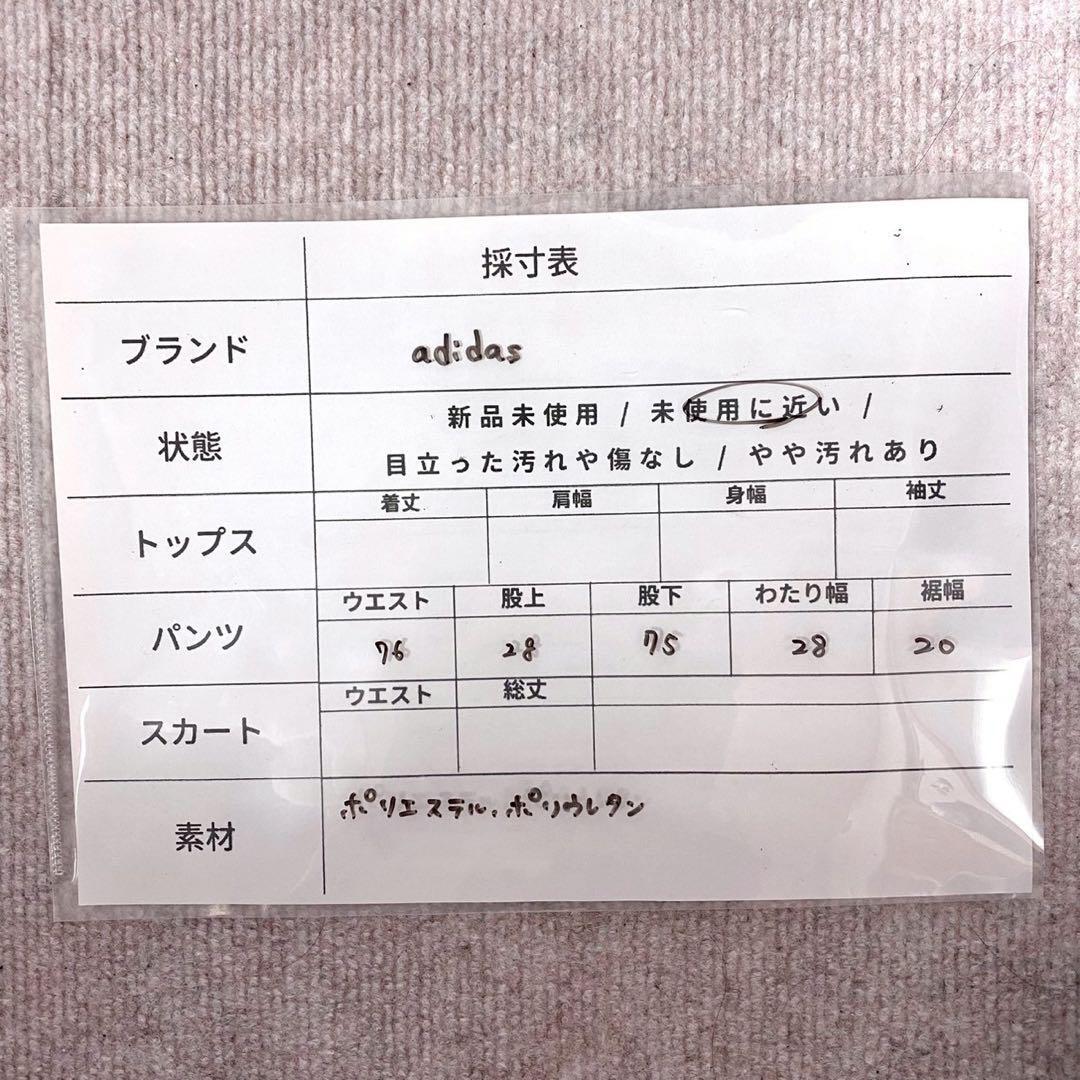 採寸表
ブランド adidas
状態 新品未使用 / 未使用に近い /
目立った汚れや傷なし / やや汚れあり
トップス 着丈 肩幅 身幅 袖丈
パンツ ウエスト 股上 股下 わたり幅 裾幅
76 28 75 28 20
スカート ウエスト 総丈
素材 ポリエステル、ポリウレタン